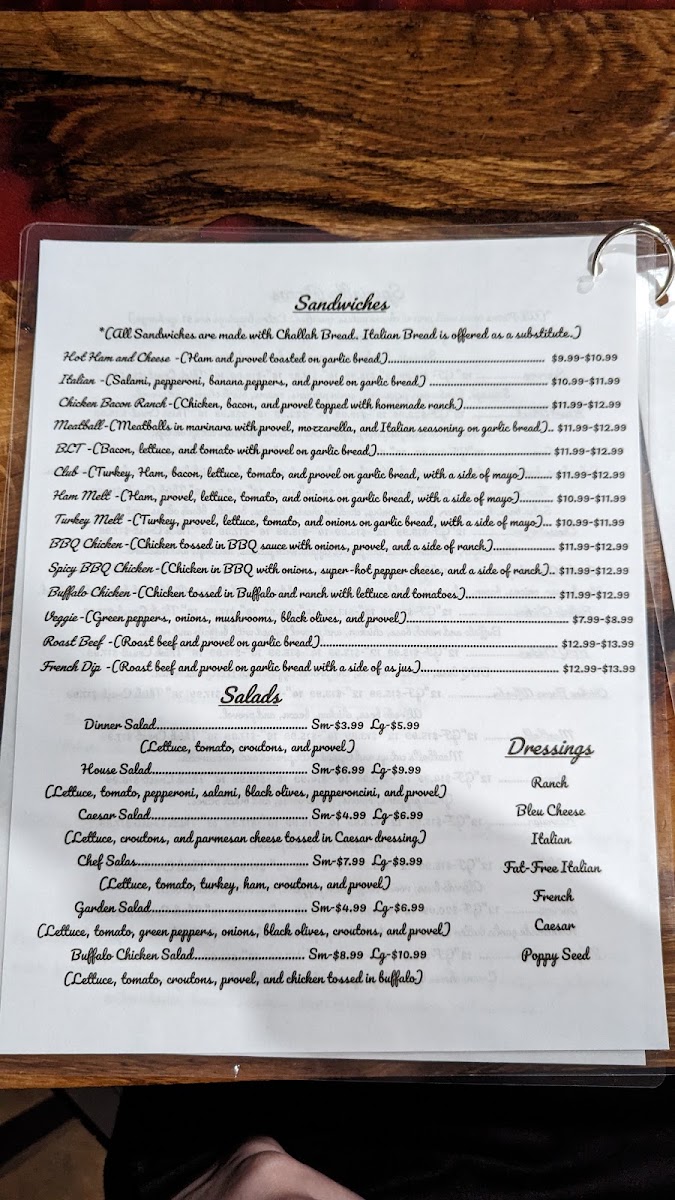 Sandwiches
*(All Sandwiches are made with Challah Bread. Italian Bread is offered as a substitute.)
Hot Ham and Cheese -(Ham and provel toasted on garlic bread)........................................ $9.99-$10.99
Italian -(Salami, pepperoni, banana peppers, and provel on garlic bread) .............................. $10.99-$11.99
Chicken Bacon Ranch-(Chicken, bacon, and provel topped with homemade ranch)...................... $11.99-$12.99
Meatball-(Meatballs in marinara with provel, mozzarella, and Italian seasoning on garlic bread).. $11.99-$12.99
BLT -(Bacon, lettuce, and tomato with provel on garlic bread)............................................. $11.99-$12.99
Club -(Turkey, Ham, bacon, lettuce, tomato, and provel on garlic bread, with a side of mayo)......... $11.99-$12.99
Ham Melt -(Ham, provel, lettuce, tomato, and onions on garlic bread, with a side of mayo).......... $10.99-$11.99
Turkey Melt -(Turkey, provel, lettuce, tomato, and onions on garlic bread, with a side of mayo)... $10.99-$11.99
BBQ Chicken-(Chicken tossed in BBQ sauce with onions, provel, and a side of ranch)..................... $11.99-$12.99
Spicy BBQ Chicken-(Chicken in BBQ with onions, super-hot pepper cheese, and a side of ranch).. $11.99-$12.99
Buffalo Chicken-(Chicken tossed in Buffalo and ranch with lettuce and tomatoes).............................. $11.99-$12.99
Veggie-(Green peppers, onions, mushrooms, black olives, and provel).......................................... $7.99-$8.99
Roast Beef -(Roast beef and provel on garlic bread)............................................................ $12.99-$13.99
French Dip -(Roast beef and provel on garlic bread with a side of as jus)................................... $12.99-$13.99
Salads
Dinner Salad................................ Sm-$3.99 Lg-$5.99
(Lettuce, tomato, croutons, and provel)
House Salad................................. Sm-$6.99 Lg-$9.99
(Lettuce, tomato, pepperoni, salami, black olives, pepperoncini, and provel)
Caesar Salad................................ Sm-$4.99 Lg-$6.99
(Lettuce, croutons, and parmesan cheese tossed in Caesar dressing)
Chef Salas..................................... Sm-$7.99 Lg-$9.99
(Lettuce, tomato, turkey, ham, croutons, and provel)
Garden Salad................................. Sm-$4.99 Lg-$6.99
(Lettuce, tomato, green peppers, onions, black olives, croutons, and provel)
Buffalo Chicken Salad........................ Sm-$8.99 Lg-$10.99
(Lettuce, tomato, croutons, provel, and chicken tossed in buffalo)
Dressings
Ranch
Bleu Cheese
Italian
Fat-Free Italian
French
Caesar
Poppy Seed